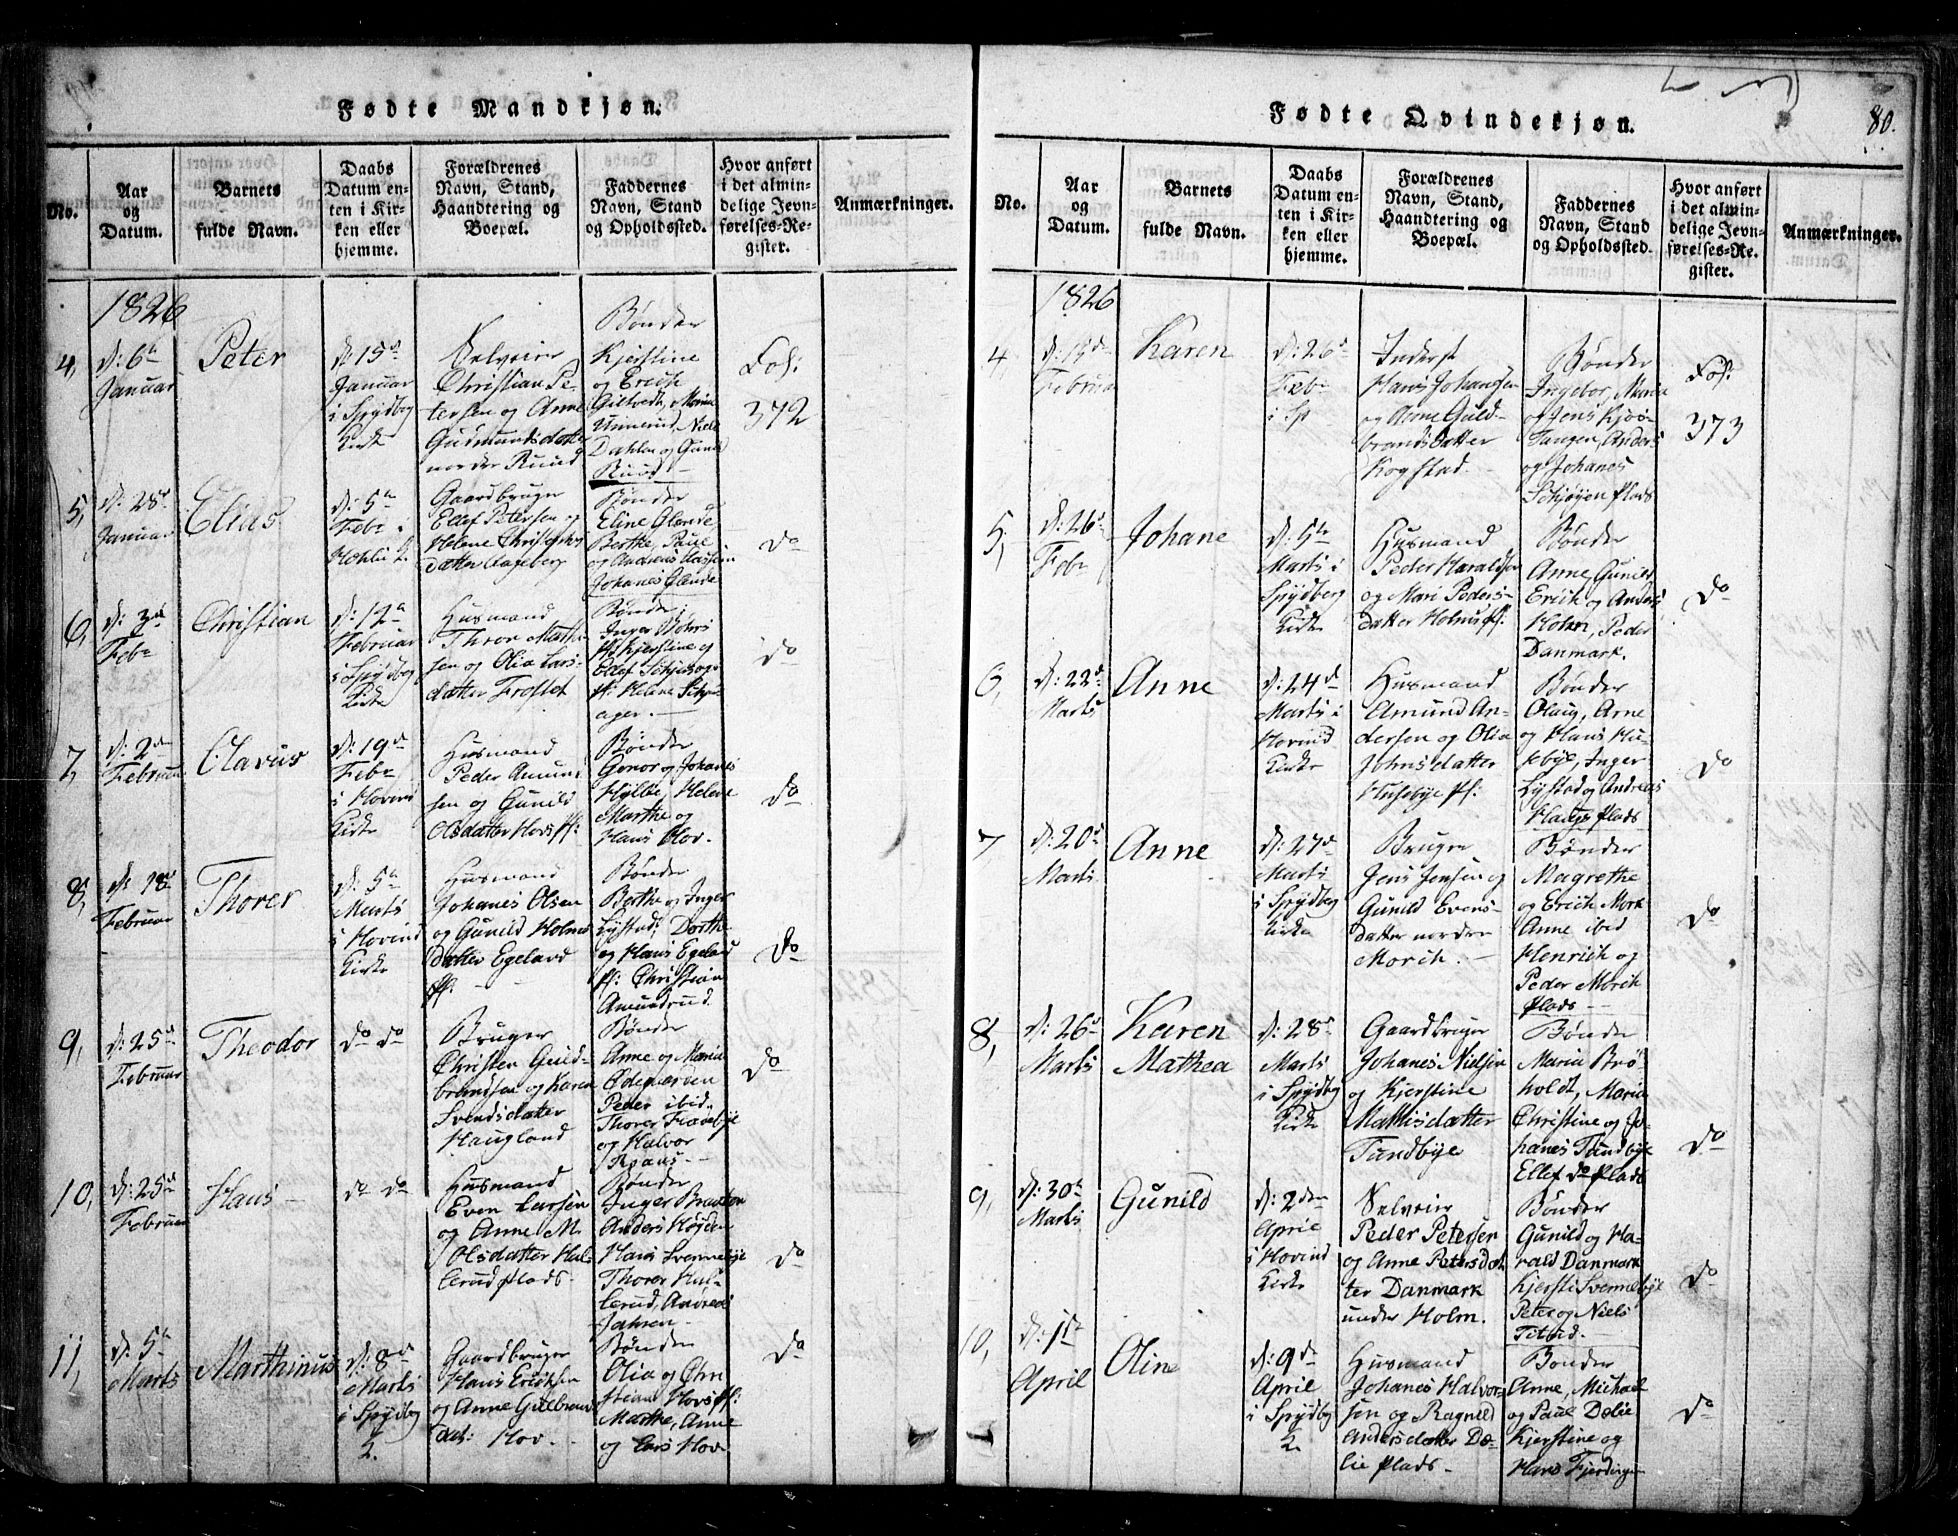 Fødte Mandkjøn.
No.
Aar
og
Datum.
Barnets
fulde Navn.
Daabs
Datum en-
ten i Kir-
ken eller
hjemme.
Forældrenes
Navn, Stand,
Haandtering og
Boepæl.
Faddernes
Navn, Stand
og Opholdssted.
Hvor anført
i det almin-
delige Jevn-
førelses-Re-
gister.
Anmærkninger.
1826
4,
d: 6te
Januar
Peter
d: 15de
Januar
i Spydbg
Kirke
Selveier
Christian Pe-
tersen og Anne
Gudmundsdatter
nordre Ruud
Bønder
Kjerstine
og Erich
Giltvedt, Maria
Unnerud, Niels
Dahlen og Gunil
Ruud
Fol:
372
5,
d: 28de
Januar
Elias
d: 5te
Febr i
Gaardbruger
Ellef Petersen og
Helene Christophers
datter Aageberg
Bønder
Eline Glende
Berthe, Paul
og Andreas
Johanes Glende
do
6,
d: 3de
Febr
Christian
d: 12te
Februar
i Spydbeg
Kirke
Husmand
Thron Mathi-
sen og Olia Lars-
datter Frostet
Bønder
Inger
Kjerstine og
Helene
ager.
do
7,
d: 2den
Februar
Olavus
d: 19de
Febr
i Hovind
Kirke
Husmand
Peder Amund
sen og Gunild
Olsdatter Hovs pl:
Bønder
Gonor og Johanes
Hylbe, Helene
Marthe og
Hans Hov.
do
8,
d: 18de
Februar
Thorer
d: 5te
Marts
i Hovind
Kirke
Husmand
Johanes Olsen
og Gunild Holms
datter Egeland
pl:
Bønder
Berthe og Inger
Lystad, Dorthe
og Hans Egeland
pl: Christian
Amundrud.
do
9,
d: 25de
Februar
Theodor
do do
Bruger
Christen Guld-
brandsen og Karen
Svendsdatter
Haugland
Bønder
Anne og Maria
Ødegaarden
Peder ibid.
Thorer
og Halvor
do
10,
d: 25de
Februar
Hans
do do
Husmand
Even Larsen
og Anne M.
Olsdatter Hul-
lerud plads.
Bønder
Inger
Anders
Hans Svennebye
Thorer Hul-
lerud, Andreas
Jahren.
do
11,
d: 5te
Marts
Marthinus
d: 8de
Marts
i Spydbeg
K.
Gaardbruger
Hans Ericksen
og Anne Gulbrand
dat: Hov.
Bønder
Olia og Chri
stian Hovs pl:
Marthe, Anne
og Lars Hov
do
80.
Fødte Qvindekjøn.
No.
Aar
og
Datum.
Barnets
fulde Navn.
Daabs
Datum en-
ten i Kir-
ken eller
hjemme.
Forældrenes
Navn, Stand,
Haandtering og
Boepæl.
Faddernes
Navn, Stand
og Opholdssted.
Hvor anført
i det almin-
delige Jevn-
førelses-Re-
gister.
Anmærkninger.
1826
4
Februar
Karen
d: 26de
Febr
i Sp
Inderst
Hans Johansen
og Anne Guld-
brandsdatter
Kogstad.
Bønder
Ingebor, Maria
og Jens Kjos-
Tangen, Anders
og Johanes
Schjøyen plads
Fol:
373
5,
d: 26de
Febr
Johane
d: 5te
Marts i
Spydberg
Kirke
Husmand
Peder Haraldsen
og Mari Peders-
datter Holms pl:
Bønder
Anne, Gunild
Erich og Anders
Holm, Peder
Danmark.
do
6,
d: 22de
Marts
Anne
d: 24de
Marts i
Hovind
Kirke
Husmand
Edmund An-
dersen og Olia
Johnsdatter
Husebye pl:
Bønder
Olaug, Arne
og Hans Hu-
sebye, Inger
Lystad og Andreas
Haugs plads
do
7
d: 20de
Marts
Anne
d: 27de
Marts
i Spydbeg
Kirke
Bruger
Jens Jensen og
Gunild Evens-
datter nordre
Morch.
Bønder
Magrethe
og Erich Mork
Anne ibid
Henrich og
Peder Morch
plads
do
8,
d: 26de
Marts
Karen
Mathea
d: 28de
Marts
i Spydbg
Kirke
Gaardbruger
Johanes Nielsen
og Kjerstine
Mathisdatter
Tundbye
Bønder
Maria Brø-
holdt, Maria
Christine og Jo-
hanes Tundbye
Ellef do plads
do
9,
d: 30te
Marts
Gunild
d: 2den
April
i Hovind
Kirke
Selveier
Peder Petersen
og Anne Petersdat
ter Danmark
under Holm.
Bønder
Gunild og Ha-
rald Danmark
Kjersti Svennebye
Peter og Niels
do
10,
d: 1ste
April
Oline
d: 9de
April
i Spydbeg
K.
Husmand
Johanes Halvor-
sen og Ragnild
Andersdatter Dæ-
lie plads.
Bønder
Anne, Michael
og Paul Dælie
Kjerstine og
Hans Fjerdingen
do